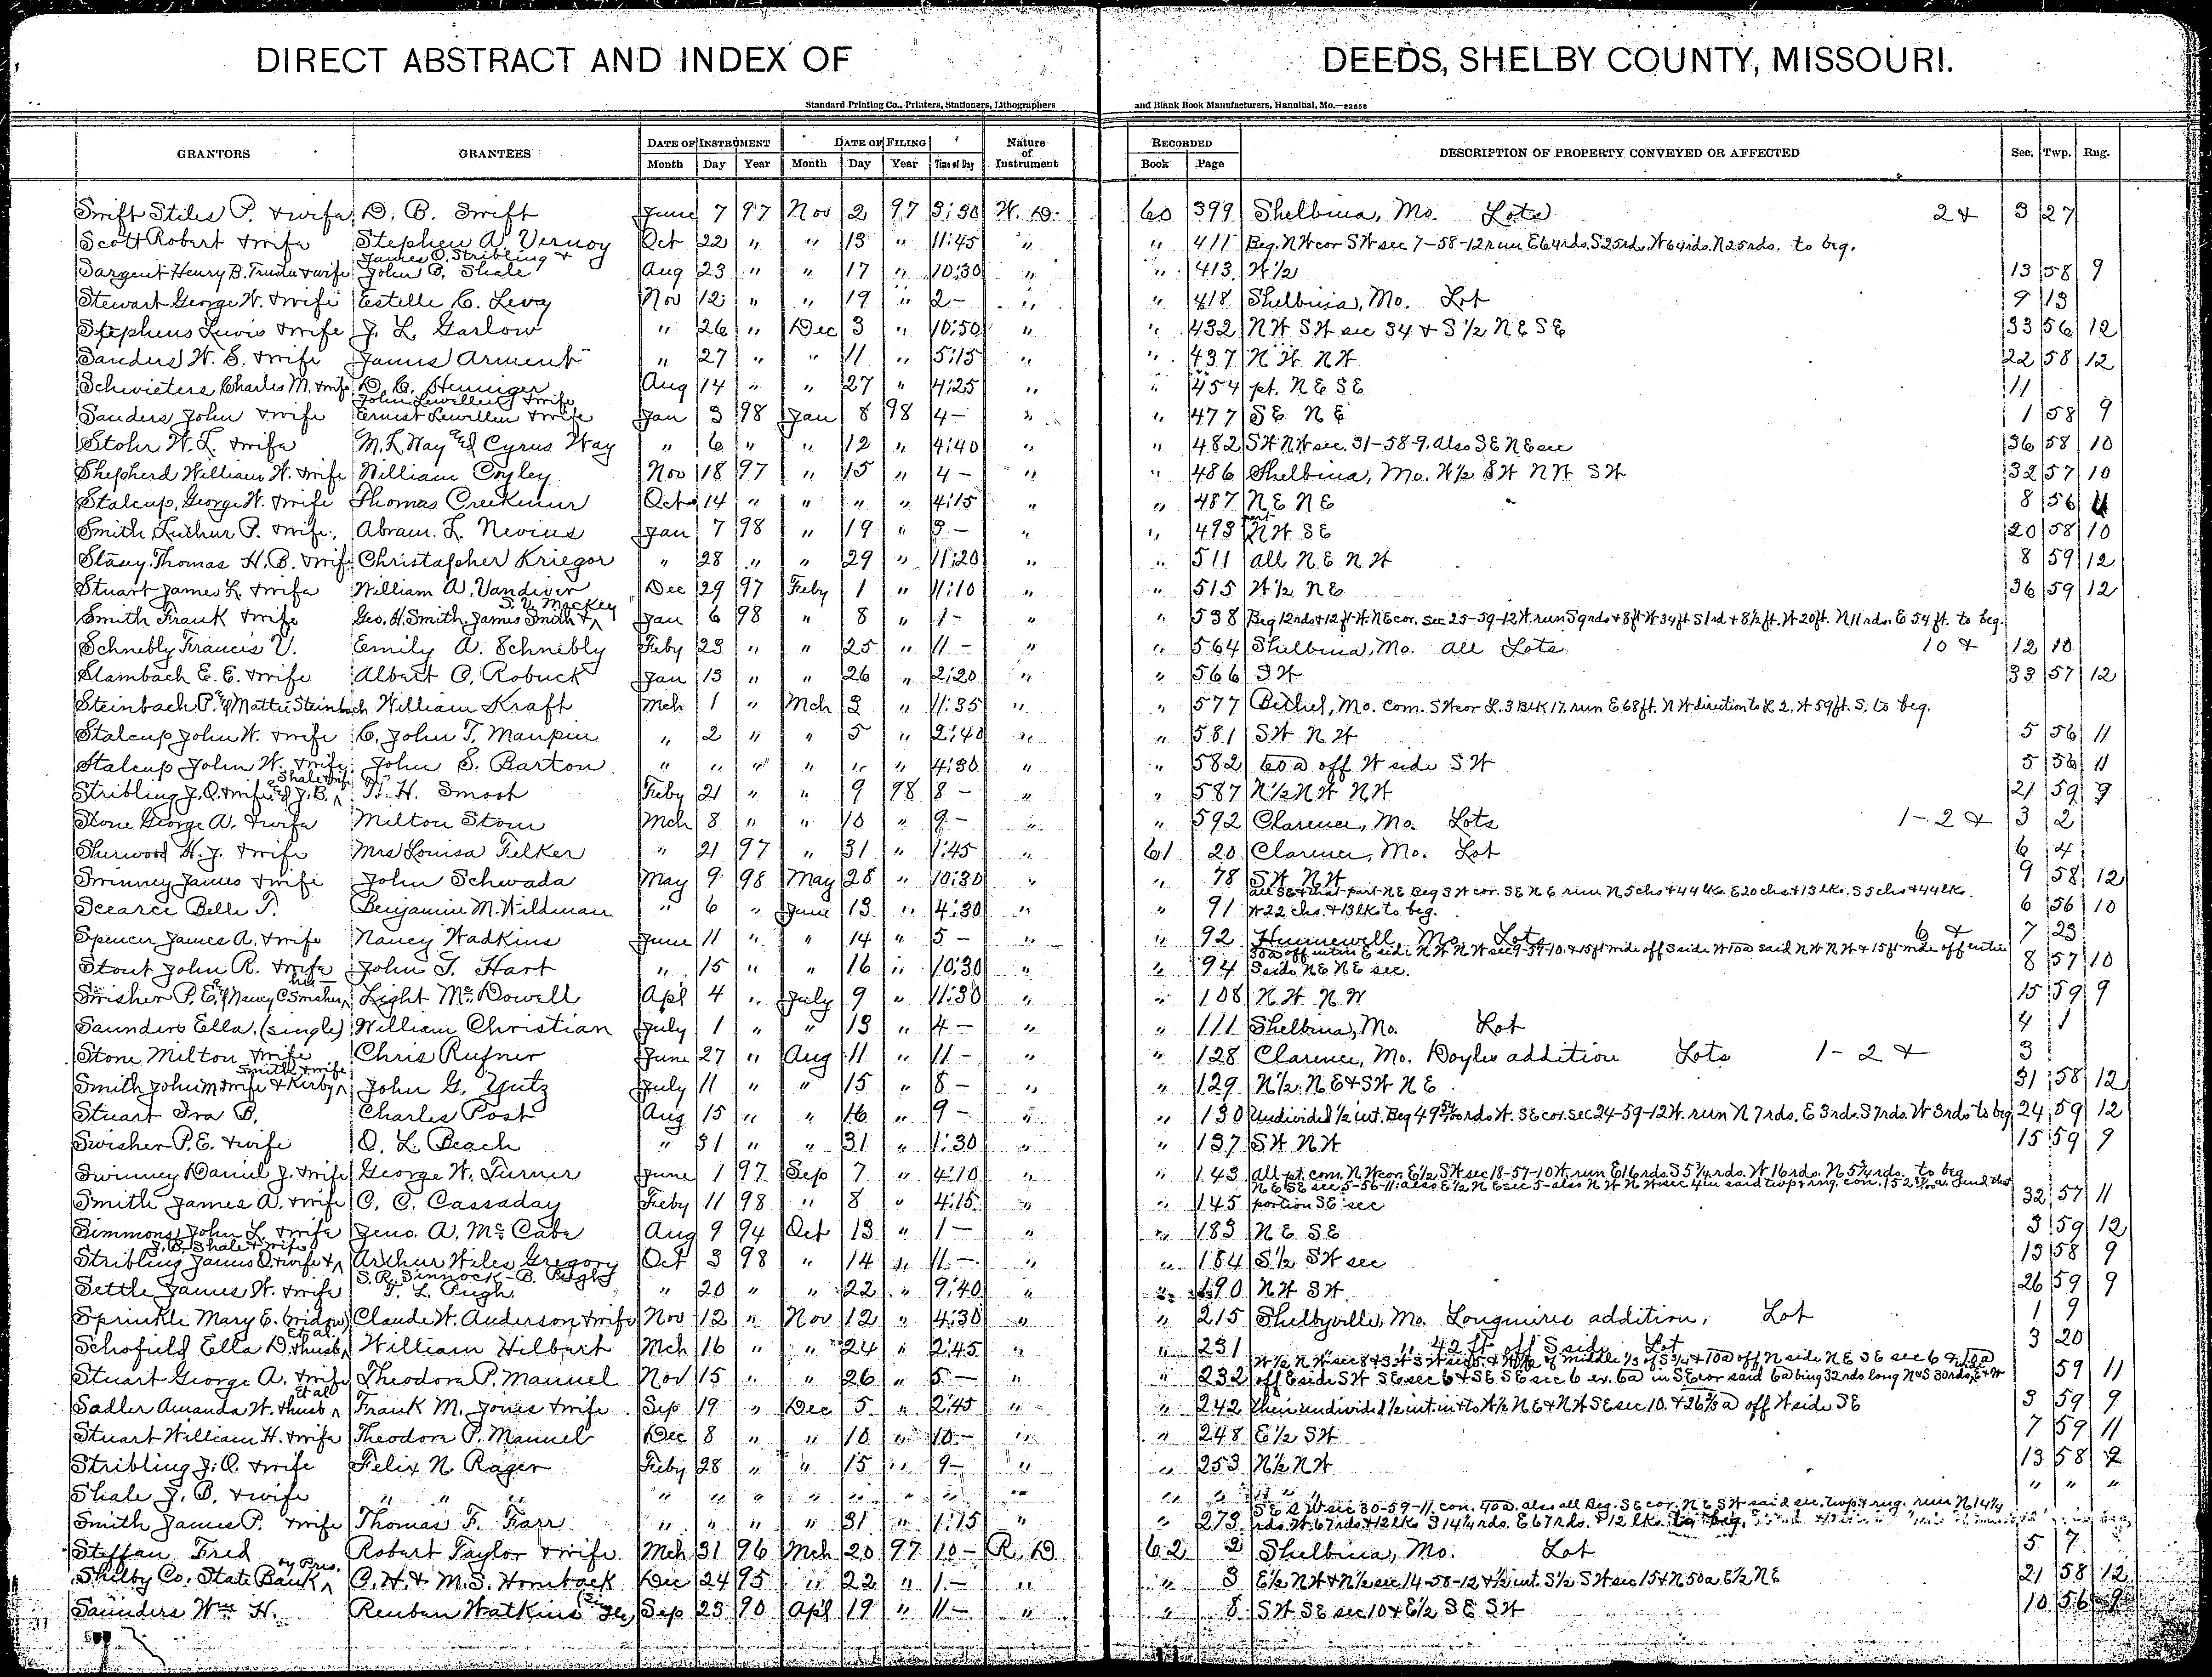 DIRECT ABSTRACT AND INDEX OF DEEDS, SHELBY COUNTY, MISSOURI.
Standard Printing Co., Printers, Stationers, Lithographers and Blank Book Manufacturers, Hannibal, Mo.—22658
GRANTORS GRANTEES DATE OF INSTRUMENT DATE OF FILING Nature of Instrument RECORDED DESCRIPTION OF PROPERTY CONVEYED OR AFFECTED Sec. Twp. Rng.
Month Day Year Month Day Year Time of Day Book Page
Swift Stiles P. & wife D. B. Swift June 7 97 Nov 2 97 3:30 W. D. 60 399 Shelbina, Mo. Lots 2 & 3 27
Scott Robert & wife Stephen A. Vernoy Oct 22 " " 13 " 11:45 " " 411 Beg. N W cor S W sec 7-58-12 run E 64 rds. S 25 rds. W 64 rds. N 25 rds. to beg.
Sargent Henry B. Trustee & wife James Q. Stribling & John B. Shale Aug 23 " " 17 " 10:30 " " 413 W ½ 13 58 9
Stewart George W. & wife Estelle C. Levy Nov 12 " " 19 " 2- " " 418 Shelbina, Mo. Lot 9 13
Stephens Lewis & wife J. L. Garlow " 26 " Dec 3 " 10:50 " " 432 N W S W sec 34 & S ½ N E S E 33 56 12
Sanders W. E. & wife James Arment " 27 " " 11 " 5:15 " " 437 N W N W 22 58 12
Schwieters Charles M. & wife D. C. Heninger Aug 14 " " 27 " 4:25 " " 454 pt. N E S E 11
Sanders John & wife John Lewellen & wife Ernest Lewellen & wife Jan 3 98 Jan 8 98 4- " " 477 S E N E 1 58 9
Stohr W. L. & wife M. L. Way and Cyrus Way " 6 " " 12 " 4:40 " " 482 S W N W sec. 31-58-9. Also S E N E sec 36 58 10
Shepherd William W. & wife William Copley Nov 18 97 " 15 " 4- " " 486 Shelbina, Mo. W ½ S W N W S W 32 57 10
Stalcup, George W. & wife Thomas Creekmur Oct 14 " " " " 4:15 " " 487 N E N E 8 56 11
Smith Luthur P. & wife Abram. L. Nevius Jan 7 98 " 19 " 3- " " 493 part N W S E 20 58 10
Stacy Thomas H. B. & wife Christapher Kriegor " 28 " " 29 " 11:20 " " 511 all N E N W 8 59 12
Stuart James L. & wife William A. Vandiver Dec 29 97 Feby 1 " 11:10 " " 515 W ½ N E 36 59 12
Smith Frank & wife Geo. H. Smith James Smith & S. V. Mackey Jan 6 98 " 8 " 1- " " 538 Beg 12 rds & 12 ft W. N E cor. sec 25-59-12 W. run S 9 rds & 8 ft W 34 ft S 1 rd & 8½ ft. W 20 ft. N 11 rds. E 54 ft. to beg.
Schnebly Francis V. Emily A. Schnebly Feby 23 " " 25 " 11- " " 564 Shelbina, Mo. all Lots 10 & 12 10
Stambach E. E. & wife Albert C. Robuck Jan 13 " " 26 " 2:20 " " 566 S W 33 57 12
Steinbach P. and Mattie Steinbach William Kraft Mch 1 " Mch 3 " 11:35 " " 577 Bethel, Mo. Com. S W cor L. 3 Blk 17. run E 68 ft. N W direction to L 2. W 59 ft. S. to beg.
Stalcup John W. & wife C. John T. Maupin " 2 " " 5 " 2:40 " " 581 S W N W 5 56 11
Stalcup John W. & wife John S. Barton " " " " " " 4:30 " " 582 60 a off W side S W 5 56 11
Stribling J. Q. & wife and J. B. Shale & wife W. H. Smoot Feby 21 " " 9 98 8- " " 587 N ½ N W N W 21 59 9
Stone George A. & wife Milton Stone Mch 8 " " 10 " 9- " " 592 Clarence, Mo. Lots 1-2 & 3 2
Sherwood H. J. & wife Mrs Louisa Felker " 21 97 " 31 " 1:45 " 61 20 Clarence, Mo. Lot 6 4
Swinney James & wife John Schwada May 9 98 May 28 " 10:30 " " 78 S W N W 9 58 12
Scearce Belle T. Benjamin M. Wildman " 6 " June 13 " 4:30 " " 91 all S E & that part N E Beg S W cor. S E N E run N 5 chs & 44 lks. E 20 chs. & 13 lks. S 5 chs & 44 lks. W 22 chs. & 13 lks to beg. 6 56 10
Spencer James A. & wife Nancy Wadkins June 11 " " 14 " 5- " " 92 Hunnewell, Mo. Lots 6 & 7 23
Stout John R. & wife John T. Hart " 15 " " 16 " 10:30 " " 94 30 a off entire E side N W N W sec 9-57-10. & 15 ft wide off S side W 10 a said N W N W & 15 ft wide off entire S side N E N E sec. 8 57 10
Swisher P. E. & Nancy C Swisher his Light McDowell Apl 4 " July 9 " 11:30 " " 108 N W N W 15 59 9
Saunders Ella, (single) William Christian July 1 " " 13 " 4- " " 111 Shelbina, Mo. Lot 4 1
Stone Milton & wife Chris Rufner June 27 " Aug 11 " 11- " " 128 Clarence, Mo. Doyles addition Lots 1-2 & 3
Smith John M & wife & Kirby Smith & wife John G. Yutz July 11 " " 15 " 8- " " 129 N ½ N E & S W N E 31 58 12
Stuart Ira B. Charles Post Aug 15 " " 16 " 9- " " 130 Undivided ½ int. Beg 49 54/100 rds W. S E cor. sec 24-59-12 W. run N 7 rds. E 3 rds. S 7 rds. W 3 rds to beg 24 59 12
Swisher P. E. & wife O. L. Beach " 31 " " 31 " 1:30 " " 137 S W N W 15 59 9
Swinney Daniel J. & wife George W. Turner June 1 97 Sep 7 " 4:10 " " 143 All pt. com. N W cor. E ½ S W sec 18-57-10 W. run E 16 rds. S 5¾ rds. W 16 rds. N 5¾ rds. to beg
Smith James A. & wife C. C. Cassaday Feby 11 98 " 8 " 4:15 " " 145 N E S E sec 5-56-11. also E ½ N E sec 5-also N W N W sec 4 in said twp & rng. con. 152 portion S E sec 32 57 11
Simmons John L. & wife Zeno. A. McCabe Aug 9 94 Oct 13 " 1- " " 183 N E S E 3 59 12
Stribling James Q. & wife & J. B. Shale & wife Arthur Wiles Gregory Oct 3 98 " 14 " 11- " " 184 S ½ S W sec 13 58 9
Settle James W. & wife S. R. Sinnock-B. Pugh T. L. Pugh " 20 " " 22 " 9:40 " " 190 N W S W. 26 59 9
Sprinkle Mary E. (widow) Claude W. Anderson & wife Nov 12 " Nov 12 " 4:30 " " 215 Shelbyville, Mo. Longmires addition, Lot 1 9
Schofield Ella D. & husb et al. William Hilbert Mch 16 " " 24 " 2:45 " " 231 " " 42 ft off S side Lot 3 20
Stuart George A. & wife Theodora P. Manuel Nov 15 " " 26 " 5- " " 232 off E side S W S E sec 6 & S E S E sec 6 ex. 6 a in S E cor said 6 a being 32 rds long N & S 30 rds. E & W 59 11
Sadler Amanda W. & husb et al Frank M. Jones & wife Sep 19 " Dec 5 " 2:45 " " 242 their undivided ½ int. in & to W ½ N E & N W S E sec 10. & 26⅔ a off W side S E 3 59 9
Stuart William H. & wife Theodora P. Manuel Dec 8 " " 10 " 10- " " 248 E ½ S W 7 59 11
Stribling J. Q. & wife Felix N. Rager Feby 28 " " 15 " 9- " " 253 N ½ N W 13 58 9
Shale J. B. & wife " " " " " " " " " " " " " " " " "
Smith James P. & wife Thomas F. Farr " " " " 31 " 1:15 " " 273 S E S W sec 30-59-11. con. 40 a. also all Beg. S E cor. N E S W said sec. twp & rng. run N 14¼ rds. W. 67 rds. & 12 lks S 14¼ rds. E 67 rds. & 12 lks. to beg.
Steffan Fred Robert Taylor & wife Mch 31 96 Mch 20 97 10- R. D 62 2 Shelbina, Mo. Lot 5 7
Shelby Co. State Bank by Pres. C. H. & M. S. Hornback Dec 24 95 " 22 " 1- " " 3 E ½ N W & N ½ sec 14-58-12 & ½ int. S ½ S W sec 15 & N 50 a E ½ N E 21 58 12
Saunders Wm H. Reuben Watkins (single) Sep 23 90 Apl 19 " 11- " " 8 S W S E sec 10 & E ½ S E S W 10 56 9